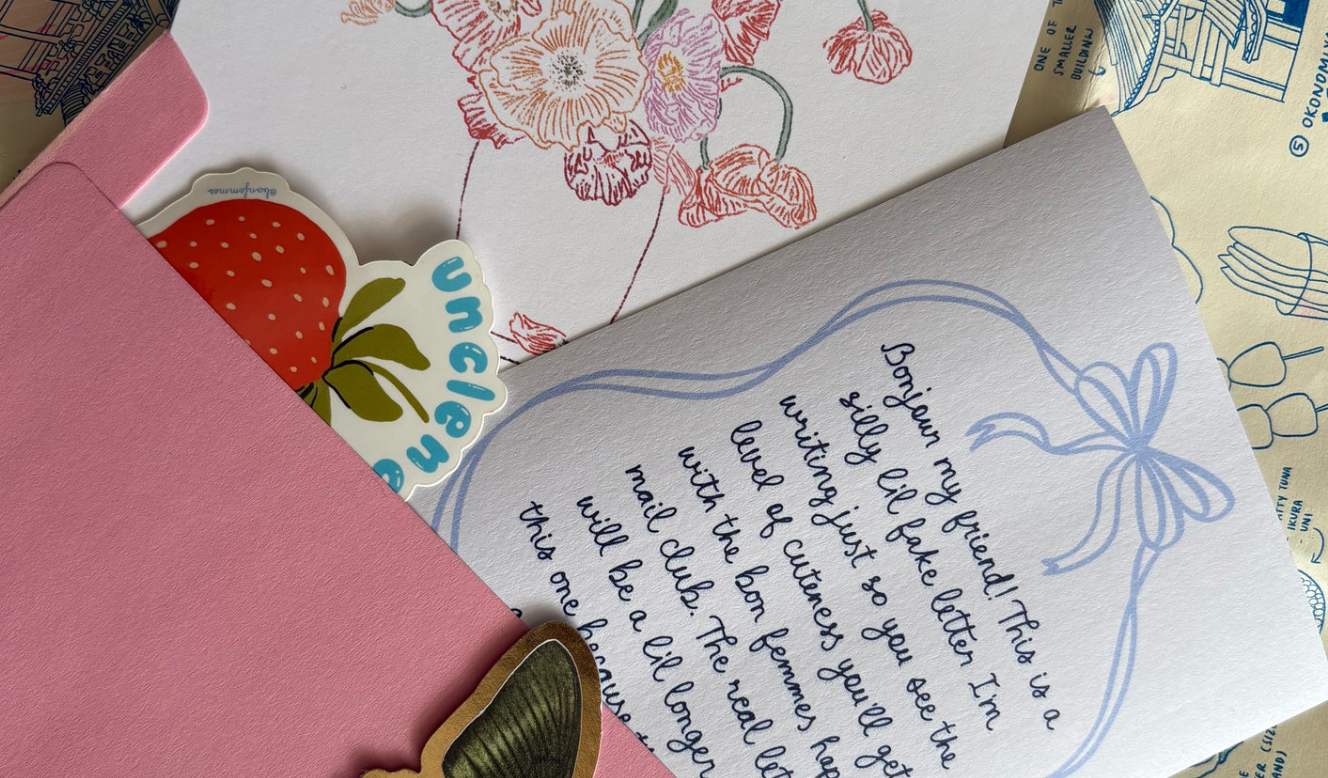 @bonfemmes
uncle n
Bonjour my friend! This is a
silly lil fake letter I'm
writing just so you see the
level of cuteness you'll get
with the bon femmes
mail club. The real
will be a lil longer
this one because
ONE OF
SMALLER
BUILDING
⑤ OKONOMIYA
TUNA
IKURA
UNI